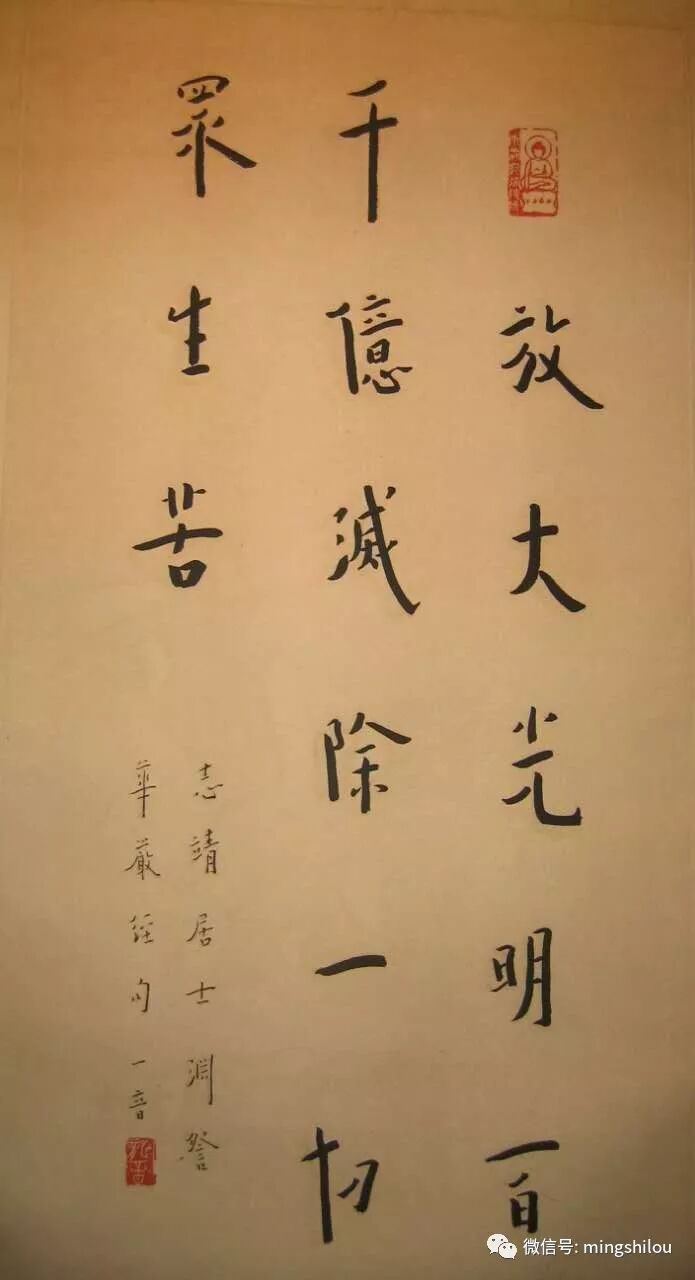 放大光明百
千億滅除一切
眾生苦
志靖居士淵詧
華嚴經句 一音
微信号: mingshilou